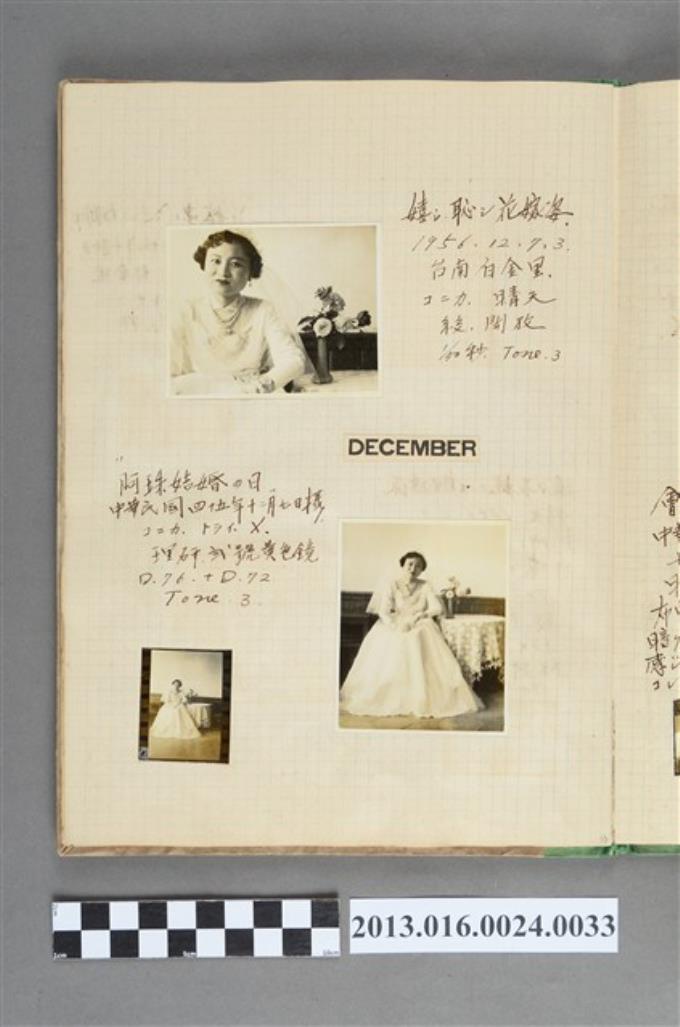 嬉シ恥シ花嫁姿.
1956.12.7.3.
台南白金里.
コニカ. 晴天
綠. 開放
1/100秒. Tone.3
DECEMBER
阿珠結婚の日.
中華民国四十五年十二月七日様
コニカ. トライ.X.
理研.弐號黄色鏡
D.76.+D.72
Tone.3.
2013.016.0024.0033